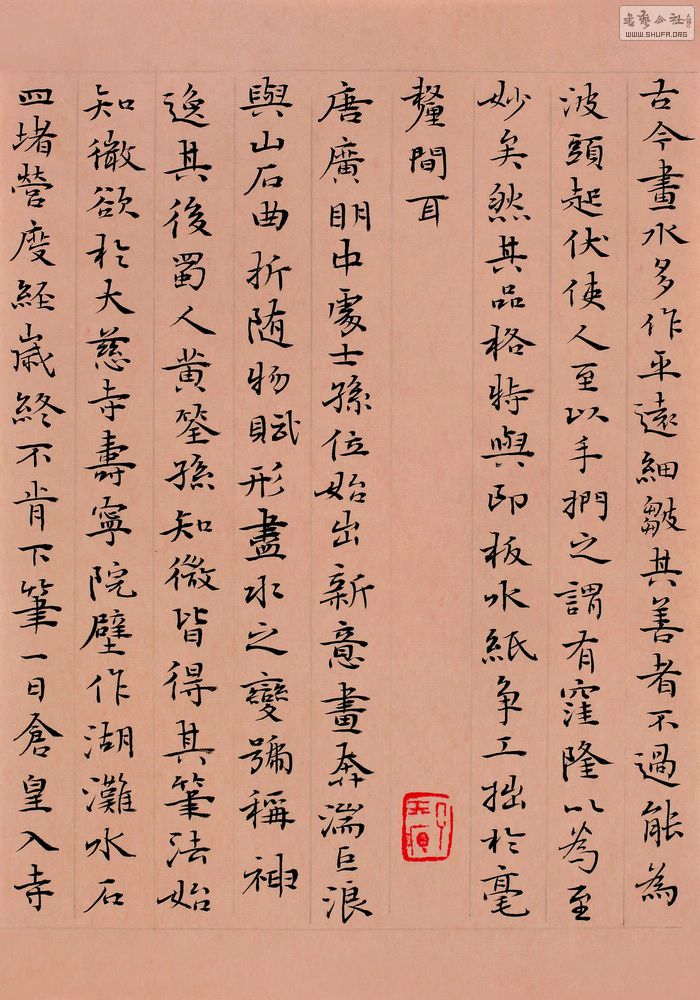 古今畫水多作平遠細皺其善者不過能為
波頭起伏使人至以手捫之謂有窪隆以為至
妙矣然其品格特與印板水紙争工拙於毫
釐間耳
唐廣明中處士孫位始出新意畫奔湍巨浪
與山石曲折随物賦形盡水之變號稱神
逸其後蜀人黄筌孫知微皆得其筆法始
知微欲於大慈寺壽寧院壁作湖灘水石
四堵營度經歲終不肯下筆一日倉皇入寺
書藝公社
WWW.SHUFA.ORG